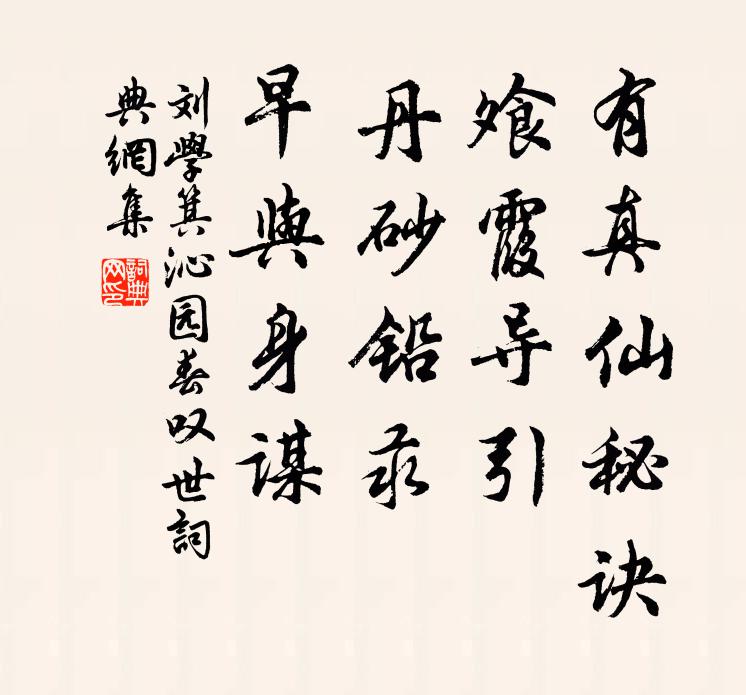 有真仙秘诀
飧霞导引
丹砂铅汞
早與身谋
刘學箕沁园春叹世詞
典網集
詞典网印